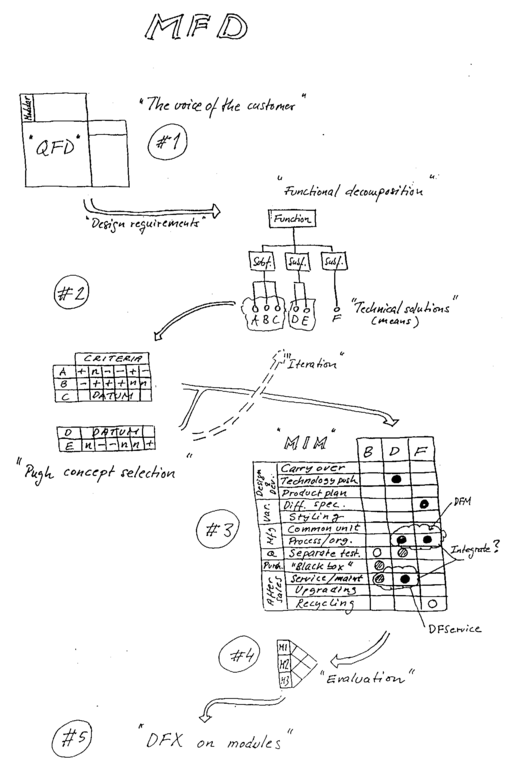 MFD
"The voice of the customer"
Modular
"QFD"
#1
"Design requirements"
"Functional decomposition"
Function
Subf. Subf. Subf.
A B C D E F
"Technical solutions"
(means)
#2
CRITERIA
A + n - - + -
B - + + + n n
C DATUM
"Iteration"
D DATUM
E n - - n n +
"Pugh concept selection"
"MIM"
B D F
Design & Dev.
Carry over
Technology push
Product plan
Var.
Diff. spec.
Styling
DFM
#3
Mfg
Common unit
Process/org.
Integrate?
Q
Separate test.
Purch
"Black box"
After sales
Service/maint
Upgrading
Recycling
DFService
#4
M1
M2
M3
"Evaluation"
#5
"DFX on modules"